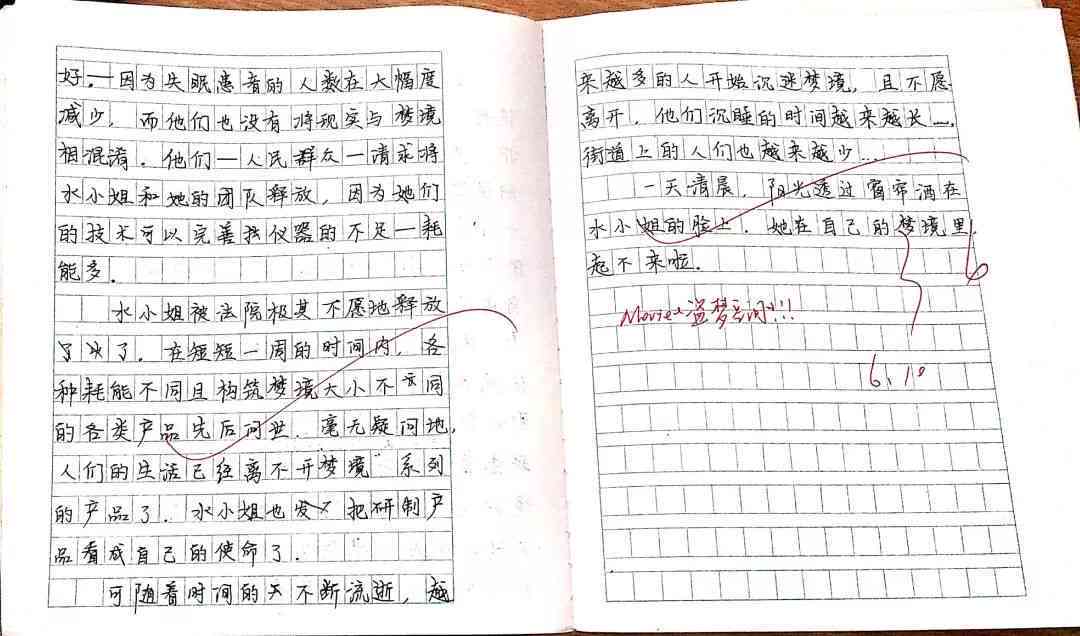 好.—因为失眠患者的人数在大幅度
减少，而他们也没有将现实与梦境
相混淆．他们—人民群众—请求将
水小姐和她的团队释放，因为她们
的技术可以完善我仪器的不足—耗
能多．
水小姐被法院极其不愿地释放
了．在短短一周的时间内，各
种耗能不同且构筑梦境大小不同
的各类产品先后问世．毫无疑问地，
人们的生活已经离不开梦境系列
的产品了．水小姐也把研制产
品看成自己的使命了．
可随着时间的不断流逝，越
来越多的人开始沉迷梦境，且不愿
离开，他们沉睡的时间越来越长……，
街道上的人们也越来越少…
一天清晨，阳光透过窗帘洒在
水小姐的脸上．她在自己的梦境里
起不来啦．
Movie: 盗梦空间!!!
6.10